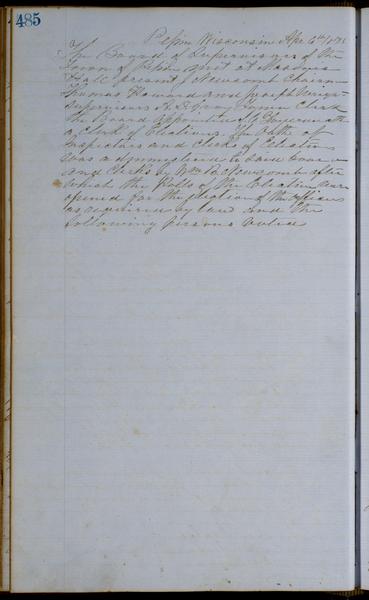 485
Pepin Wisconsin Apr 6th
The Board of Supervisors of the
Town of Pepin met at Masons
Hall present Newcomb Chairman
Thomas Howard and Joseph
Supervisors Town Clerk
the Board appointed
a Clerk of Elections the Oath of
Inspectors and Clerks of Election
was administered to Said Board
and Clerks by Wm Newcomb after
which the Polls of the Election were
opened for the election of the officers
as required by law and the
following persons voted